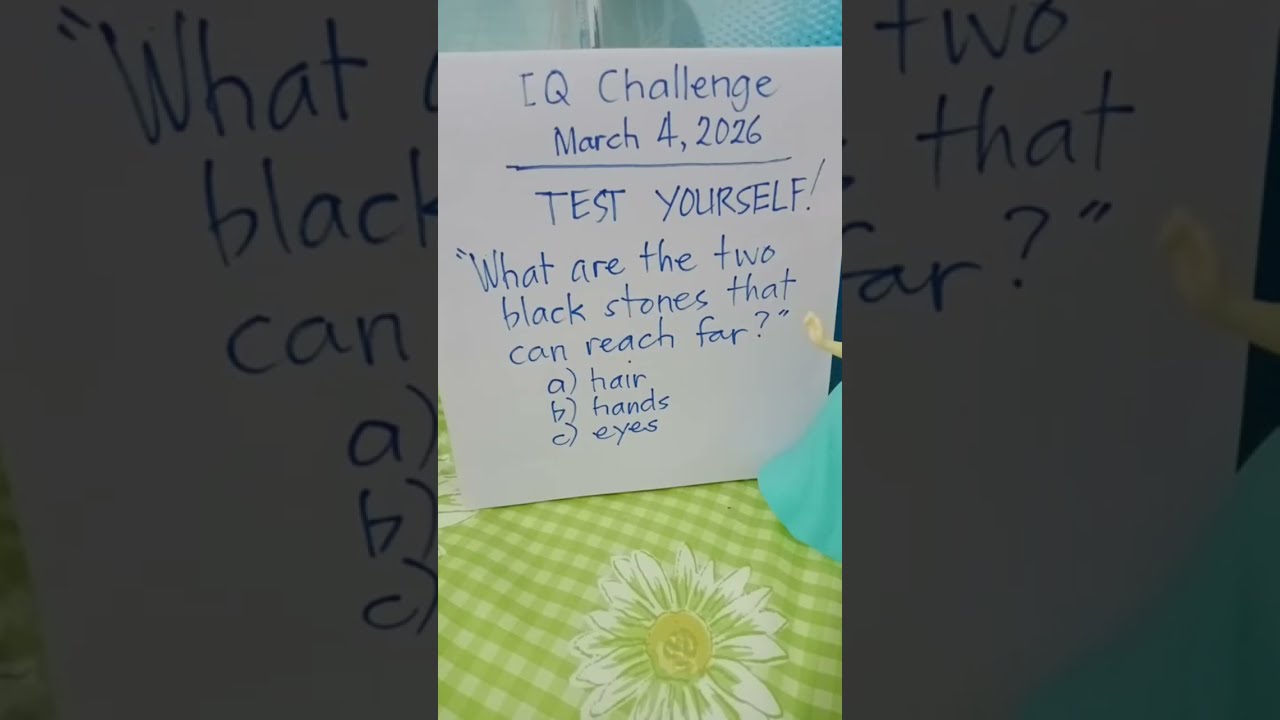 IQ Challenge
March 4, 2026
TEST YOURSELF!
"What are the two
black stones that
can reach far?"
a) hair
b) hands
c) eyes